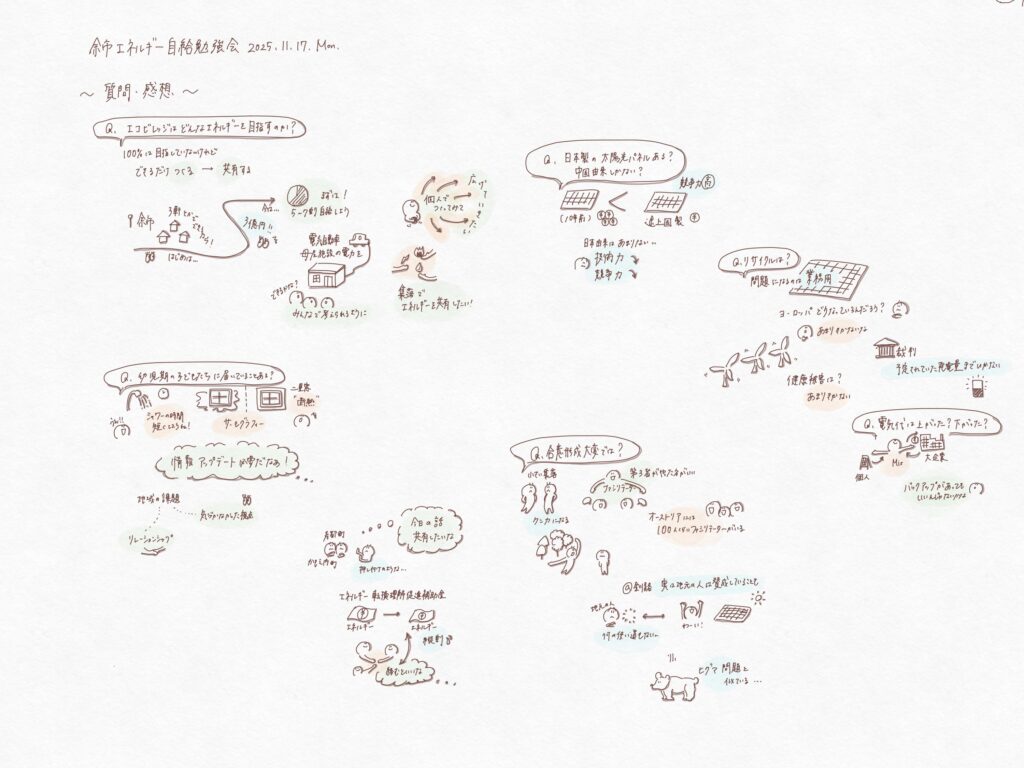 余市エネルギー自給勉強会 2025.11.17.Mon.
〜 質問・感想 〜
Q. エコビレッジはどんなエネルギーを目指すのか?
100%は目指していないけれど
できるだけ つくる → 共有する
余市
3軒
はじめは…
今は…
3億円!!
まずは!
5〜7割自給しよう
電気自動車
母屋施設の電力を
できるかな?
みんなで考えられるように
個人で
つくってみて
広げていきたい
集落で
エネルギーを共有したい!
Q. 日本製の太陽光パネルある?
中国由来しかない?
競争力 高
(10年前)
<
途上国製
日本由来はあまりない…
技術力
競争力
Q. リサイクルは?
問題になるのは 業務用
ヨーロッパ どうなっているんだろう?
あまりきかないな
裁判
予定されていた発電量までいかない
健康被害は?
あまりきかない
Q. 幼児期の子どもたちに届いていることある?
シャワーの時間
短くしようね!
サーモグラフィー
二重窓
"断熱"
情報アップデート必要だなぁ!
地域の課題
気づかなかった視点
リレーションシップ
今日の話
共有したいな
押し付けのような…
エネルギー転換理解促進補助金
エネルギー
エネルギー
組むといいな
Q. 合意形成大変では?
小さい集落
ケンカになる
第3者が居た方がいい
ファシリテーター
オーストリアには
100人くらいファシリテーターがいる
釧路 実は地元の人は賛成していることも
地元の人
何の使い道もない…
わーい!
ヒグマ問題と
似ている…
Q. 電気代は上がった?下がった?
個人
Mix
大企業
バックアップがあっても
いいんじゃないかな